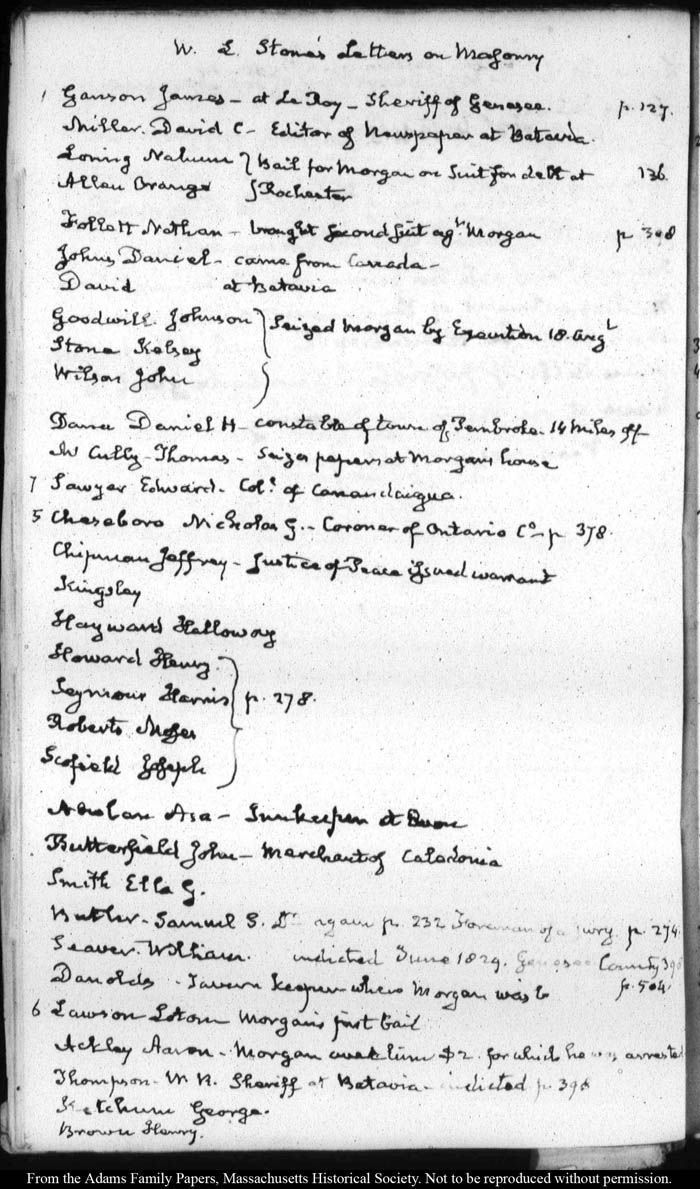 W. L. Stone's Letters on Masonry
1 Ganson James - at Le Roy - Sheriff of Genesee. p. 127.
Miller. David C - Editor of Newspaper at Batavia.
Loring Nahum } Bail for Morgan on Suit for debt at 136.
Allen Orange } Rochester
Follett Nathan - brought second suit agt Morgan p 398
Johns Daniel - came from Canada -
David at Batavia
Goodwill. Johnson } Seized Morgan by Execution 18. Augt
Stone Kelsey
Wilson John }
Dana Daniel H - constable of town of Pembroke. 14 miles off
McCully - Thomas - Seizes papers at Morgan's house
7 Sawyer Edward. Col. of Canandaigua.
5 Cheseboro Nicholas G. - Coroner of Ontario Co - p 378.
Chipman Jeffrey - Justice of Peace issued warrant
Kingsley
Hayward Holloway
Howard Henry
Seymour Harris } p. 278.
Roberts Moses
Scofield Joseph
Nowlan Asa - Innkeeper at
Butterfield John - Merchant of Caledonia
Smith Ella G.
Butler - Samuel S. Dr again p. 232 Foreman of a jury. p. 274.
Seaver. William. indicted June 1829. Genesee County 398
Danolds - Tavern keeper where Morgan was p. 504.
6 Lawson Lotom Morgan's first bail
Ackley Aaron - Morgan owed him $2. for which he was arrested
Thompson - W R. Sheriff at Batavia - indicted p 398
Ketchum George.
Brown Henry.
From the Adams Family Papers, Massachusetts Historical Society. Not to be reproduced without permission.